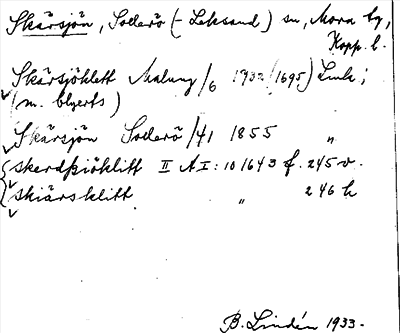 Skärsjön, Sollerö (– Leksand) sn, Mora tg,
Kopp. l.
Skärsjöklett Malung/6 1932 (1695) Lmk;
(m. blyerts)
Skärsjön Sollerö/41 1855 "
skerdsiöklitt II AI: 10 1643 f. 245 v.
skiärsklitt " 246 h
B. Lindén 1933.